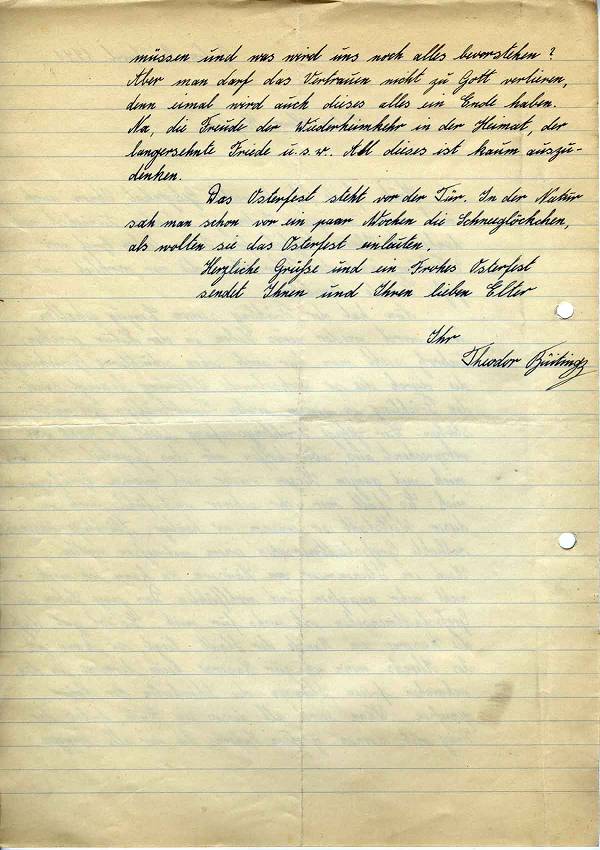 müssen und was wird uns noch alles bevorstehen?
Aber man darf das Vertrauen nicht zu Gott verlieren,
denn eimal wird auch dieses alles ein Ende haben.
Na, die Freude der Wiederheimkehr in der Heimat, der
langersehnte Friede u.s.w. All dieses ist kaum auszu-
denken.
Das Osterfest steht vor der Tür. In der Natur
sah man schon vor ein paar Wochen die Schneeglöckchen,
als wolten sie das Osterfest einleuten.
Herzliche Grüße und ein Frohes Osterfest
sendet Ihnen und Ihren lieben Elter
Ihr
Theodor